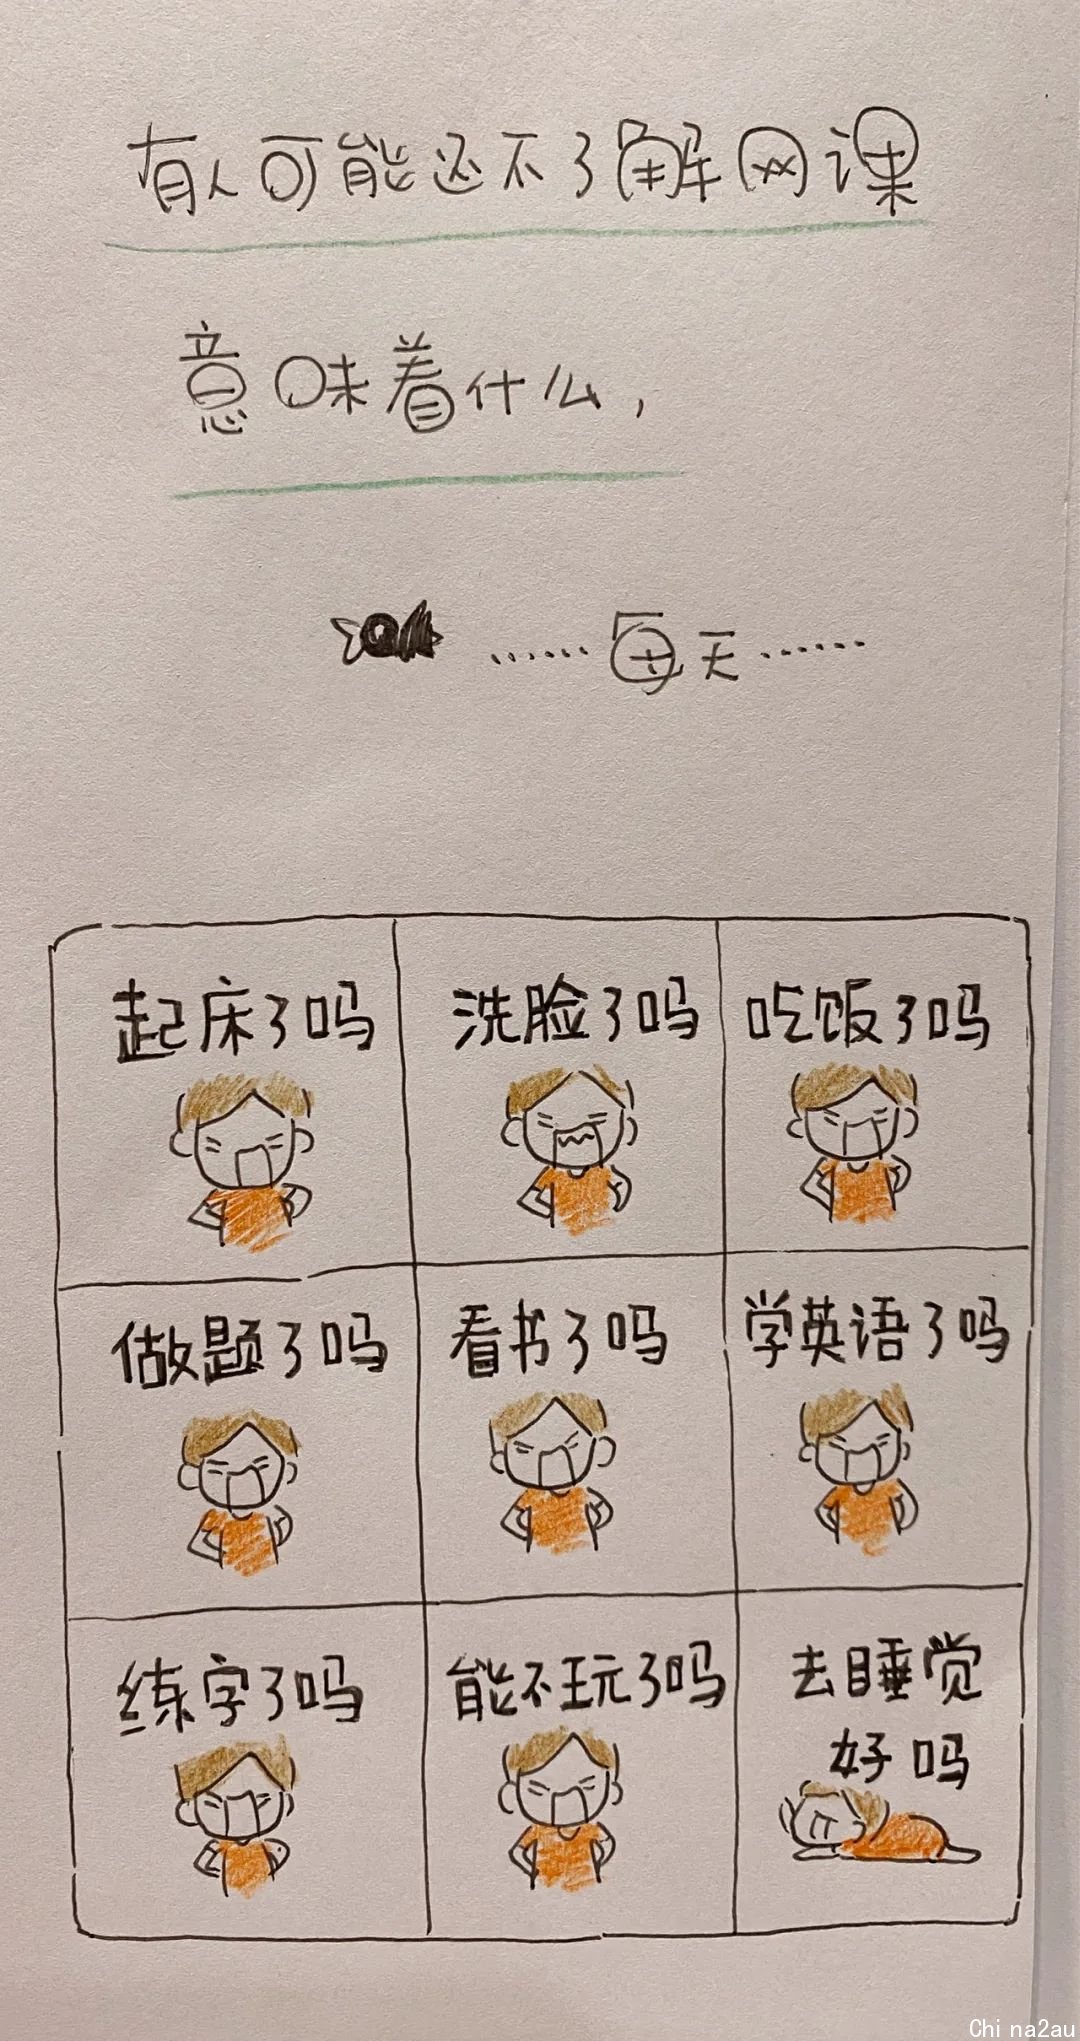 有人可能还不了解网课
意味着什么，
……每天……
起床了吗
洗脸了吗
吃饭了吗
做题了吗
看书了吗
学英语了吗
练字了吗
能不玩了吗
去睡觉
好吗
Chi na2au